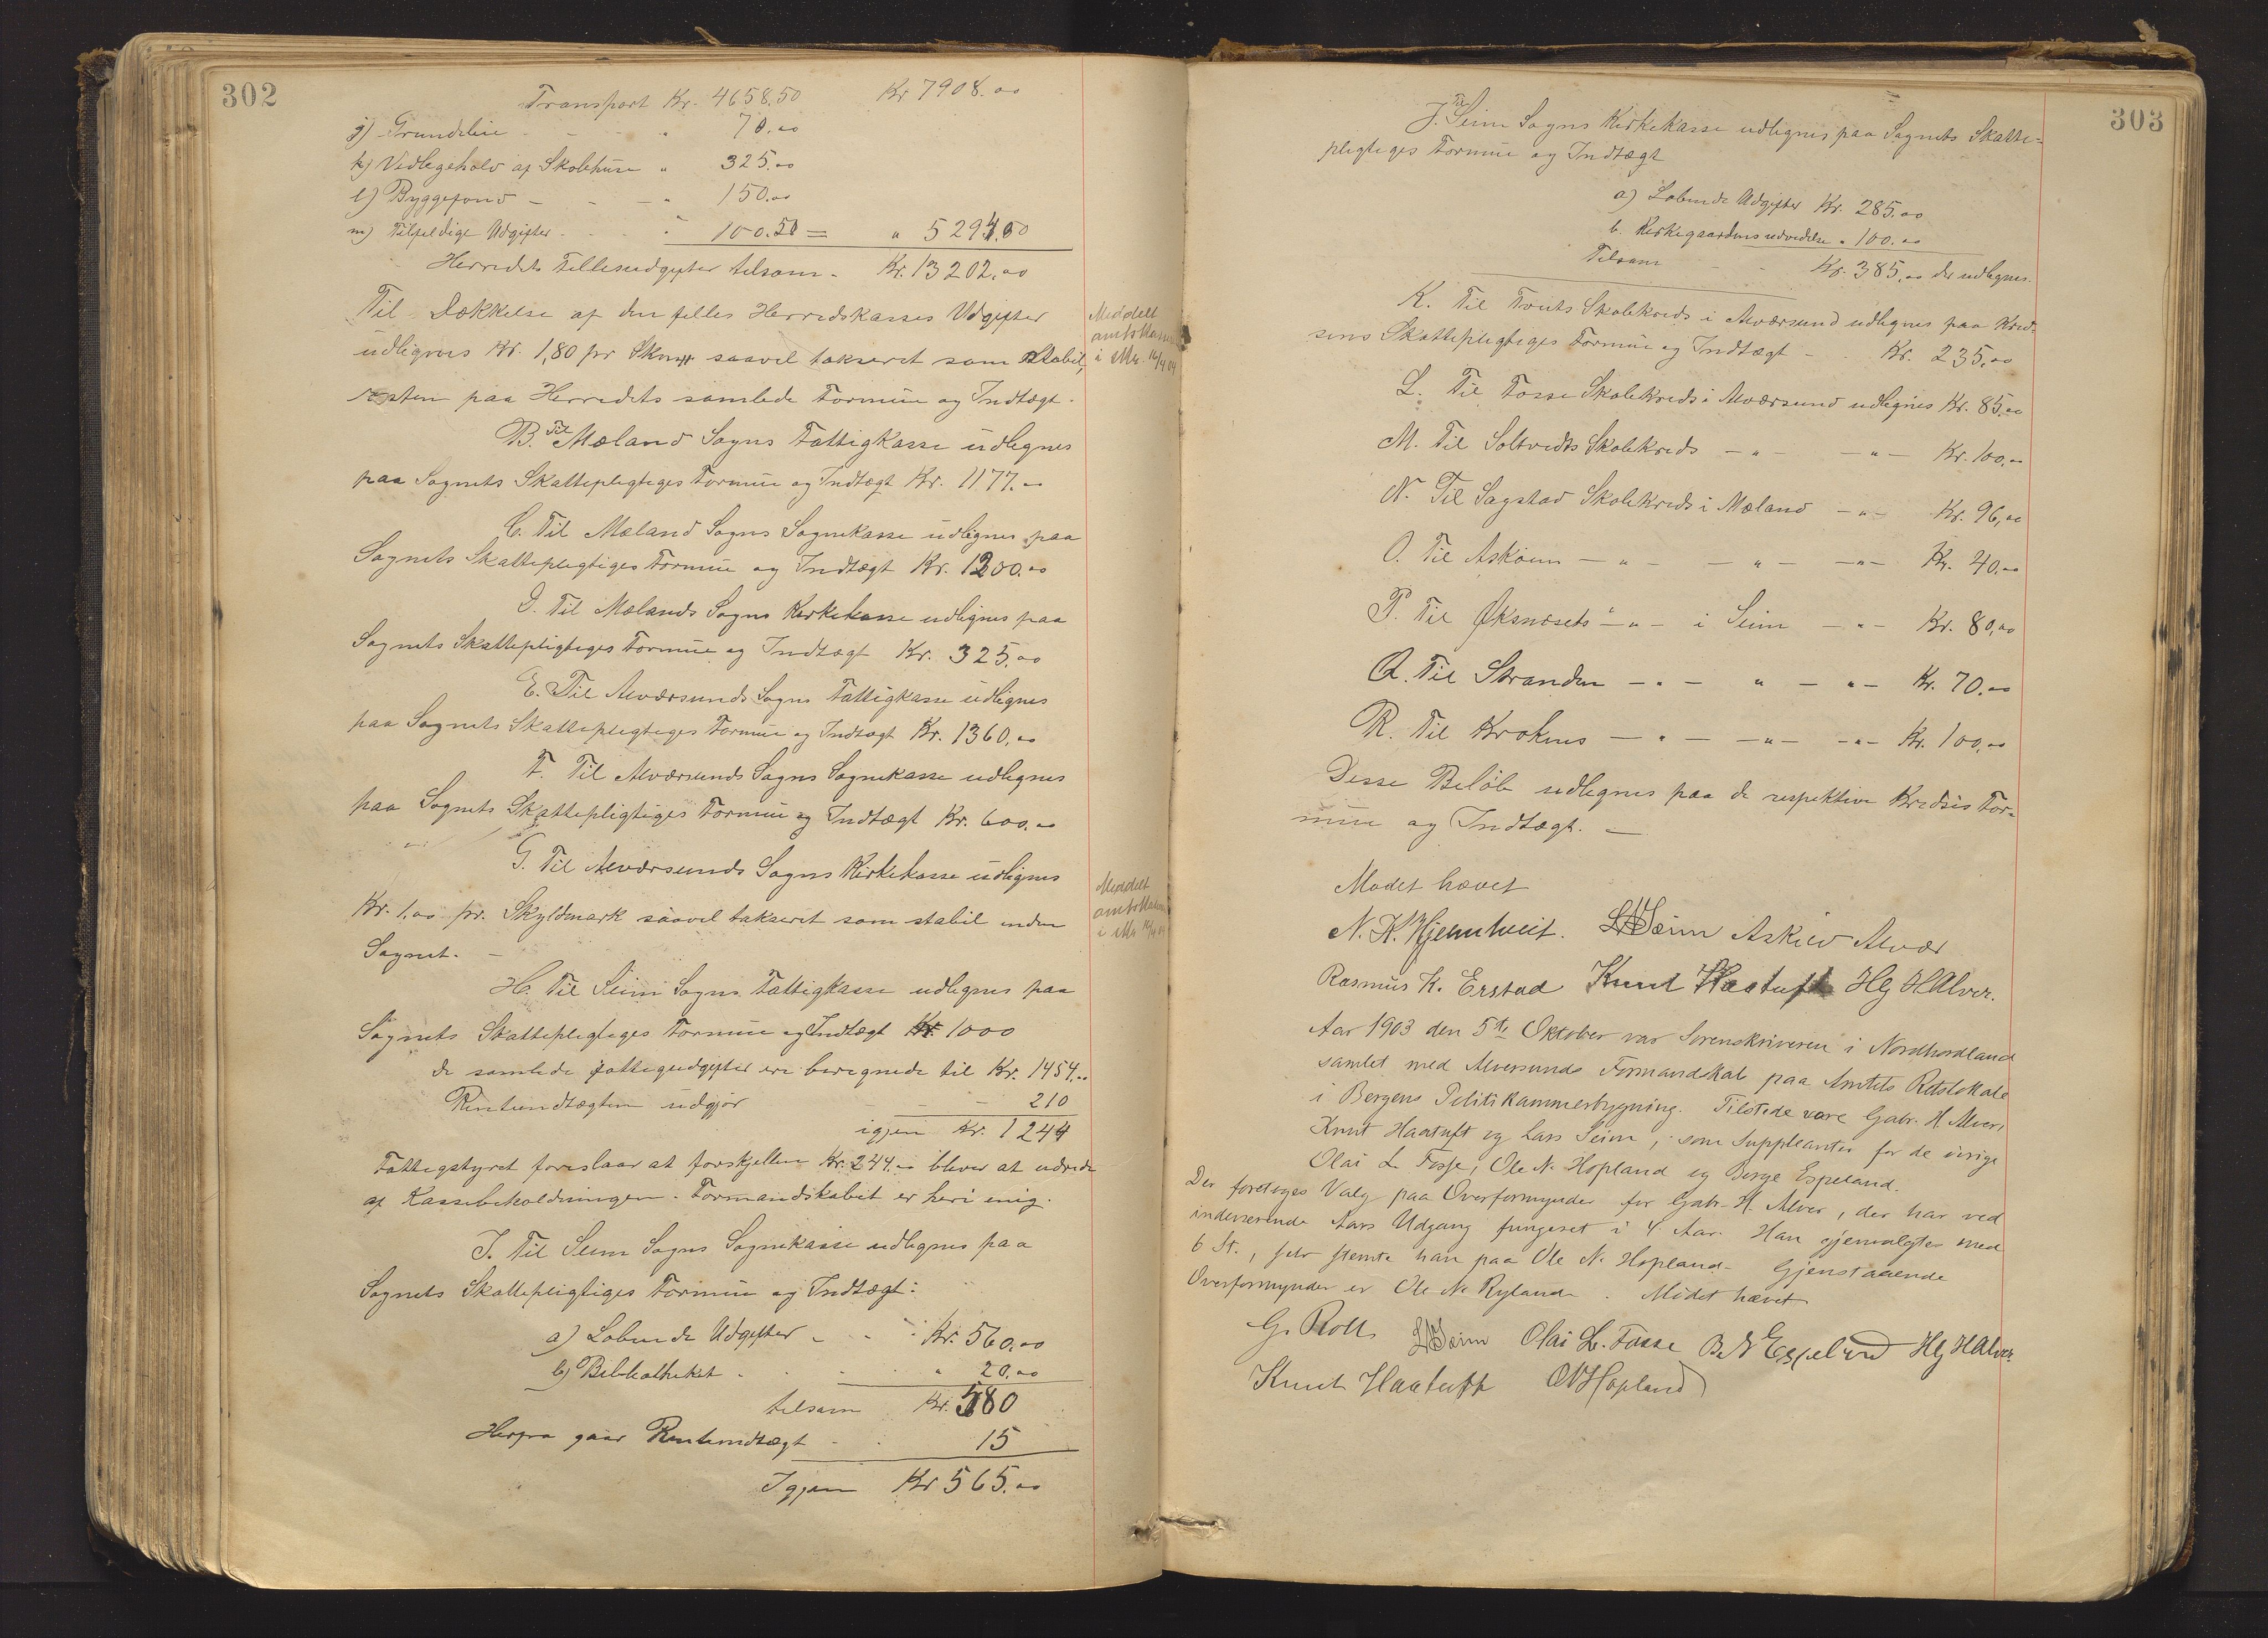 302
Transport Kr. 4658.50 Kr 7908.00
j) Grundleie - - " 70.00
k) Vedlegehold af Skolehuse " 325.00
l) Byggefond - - - " 150.00
m) Tilfeldige Udgifter - - " 100.50 = " 5294.00
Herredets Fellesudgifter tilsam - Kr. 13202.00
Til Dækkelse af den felles Herredskasses Udgifter
udlignes Kr. 1,80 pr Skmrk saavel takseret som Stabil,
resten paa Herredets samlede Formue og Indtægt.
Meddelt
i Mr. 16/4 04
B. Til Mæland Sogns Fattigkasse udlignes
paa Sognets Skattepligtiges Formue og Indtægt Kr. 1177.00
C. Til Mæland Sogns Sognekasse udlignes paa
Sognets Skattepligtiges Formue og Indtægt Kr. 1200.00
D. Til Mælands Sogns Kirkekasse udlignes paa
Sognets Skattepligtiges Formue og Indtægt Kr. 325.00
E. Til Alværsunds Sogns Fattigkasse udlignes
paa Sognets Skattepligtiges Formue og Indtægt Kr. 1360,00
F. Til Alværsunds Sogns Sognekasse udlignes
paa Sognets Skattepligtiges Formue og Indtægt Kr. 600.00
G. Til Alværsunds Sogns Kirkekasse udlignes
Kr. 1.00 pr. Skyldmark saavel takseret som stabil inden
Sognet. -
Meddelt
i Mr 16/4 04
H. Til Seim Sogns Fattigkasse udlignes paa
Sognets Skattepligtiges Formue og Indtægt Kr 1000
de samlede fattigudgifter ere beregnede til Kr. 1454.00
Renteindtægten udgjør - - 210
igjen Kr. 1244
Fattigstyret foreslaar at forskjellen Kr. 244.00 bliver at udrede
af Kassebeholdningen. Formandskabet er heri enig.
I. Til Seim Sogns Sognekasse udlignes paa
Sognets Skattepligtiges Formue og Indtægt:
a) Løbende Udgifter - - Kr. 560.00
b) Bibliotheket - - " 20.00
tilsam Kr. 580
Herfra gaar Renteindtægt - - 15
Igjen Kr 565.00
303
J. Til Seim Sogns Kirkekasse udlignes paa Sognets Skatte-
pligtiges Formue og Indtægt
a) Løbende Udgifter Kr. 285.00
b. Kirkegaardens udvidelse " 100.00
Tilsam - - Kr. 385.00 der udlignes.
K. Til Tveits Skolekreds i Alværsund udlignes paa Kred-
sens Skattepligtiges Formue og Indtægt - Kr. 235.00
L. Til Fosse Skolekreds i Alværsund udlignes Kr. 85.00
M. Til Soltvedts Skolekreds - " - - " - Kr. 100.00
N. Til Sagstad Skolekreds i Mæland - " - Kr. 96,00
O. Til Askøen - " - - " - - " - Kr. 40.00
P. Til Øksnesets - " - i Seim - " - Kr. 80,00
Q. Til Stranden - " - " - " - Kr. 70.00
R. Til Krokens - " - - " - - " - Kr. 100,00
Disse Beløb udlignes paa de respektive Kredses For-
mue og Indtægt. -
Mødet hævet
N. K. Hjelmtveit. L N Seim Askild Alvær
Rasmus K. Erstad Knut Haatuft Hg H Alver.
Aar 1903 den 5te Oktober var Sorenskriveren i Nordhordland
samlet med Alversunds Formandskab paa Amtets Retslokale
i Bergens Politikammerbygning. Tilstede vare Gabr. H Alver,
Knut Haatuft og Lars Seim, som Suppleanter for de øvrige
Olai L. Fosse, Ole N. Hopland og Børge Espeland.
Der foretoges Valg paa Overformynder for Gabr. H. Alver, der har ved
indeværende Aars Udgang fungeret i 4 Aar. Han gjenvalgtes med
6 St., selv stemte han paa Ole N. Hopland. Gjenstaaende
Overformynder er Ole N. Ryland. Mødet hævet
G. Roll L N Seim Olai L. Fosse B. N Espeland Hg H Alver
Knut Haatuft O N Hopland